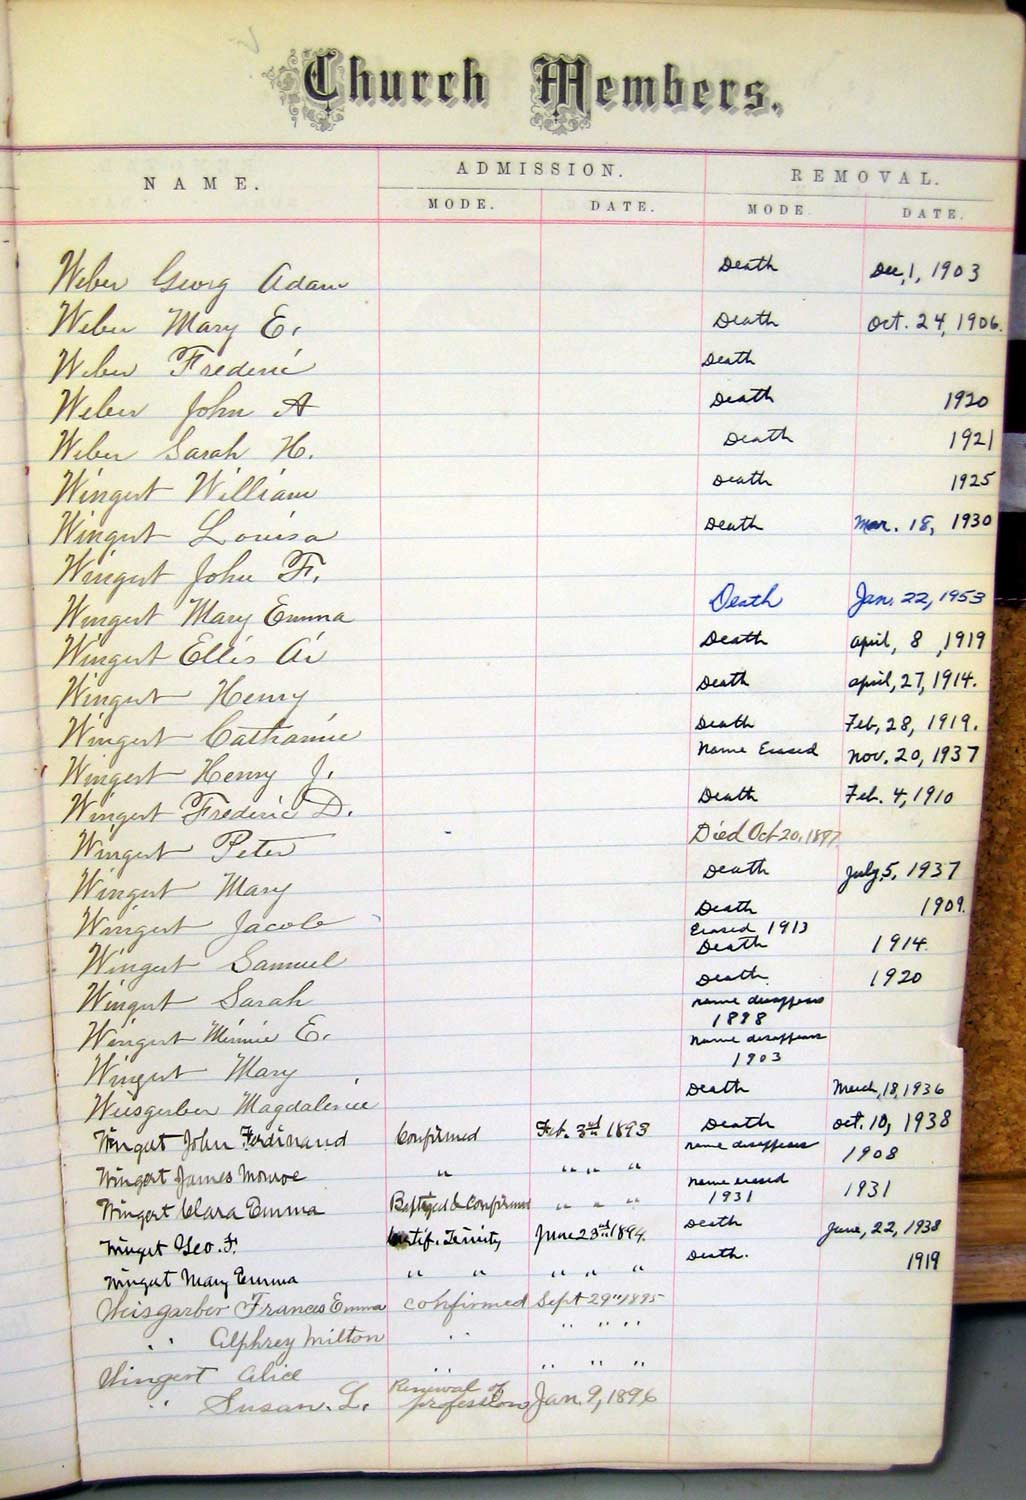 Church Members.
NAME. ADMISSION. REMOVAL.
MODE. DATE. MODE DATE.
Weber Georg Adam Death Dec, 1, 1903
Weber Mary E. Death Oct. 24, 1906.
Weber Frederic Death
Weber John A Death 1920
Weber Sarah H. Death 1921
Wingert William Death 1925
Wingert Louisa Death Mar. 18, 1930
Wingert John F.
Wingert Mary Emma Death Jan. 22, 1953
Wingert Ellis Death april, 8, 1919
Wingert Henry Death april, 27, 1914.
Wingert Catharine Death Feb, 28, 1919.
Wingert Henry J. Name Erased Nov. 20, 1937
Wingert Frederic D. Death Feb. 4, 1910
Wingert Peter Died Oct 20, 1897
Wingert Mary Death July, 5, 1937
Wingert Jacob Death 1909.
Erased 1913
Wingert Samuel Death 1914.
Wingert Sarah Death 1920
Wingert Minnie E. name disappears
1898
Wingert Mary Name disappears
1903
Weisgerber Magdalenie Death March, 18, 1936
Wingert John Ferdinand Confirmed Feb. 3rd 1893 Death Oct. 10, 1938
Wingert James Monroe " " " " name disappears 1908
Wingert Clara Emma Baptized & Confirmed " " " name erased
1931 1931
Wingert Geo. F. Certif. Trinity June 23rd 1894. Death June, 22, 1938
Wingert Mary Emma " " " " " Death. 1919
Weisgarber Frances Emma confirmed Sept 29" 1895
" Alphrey Milton " " " "
Wingert Alice " " " "
" Susan. L. Renewal of
profession Jan. 9, 1896